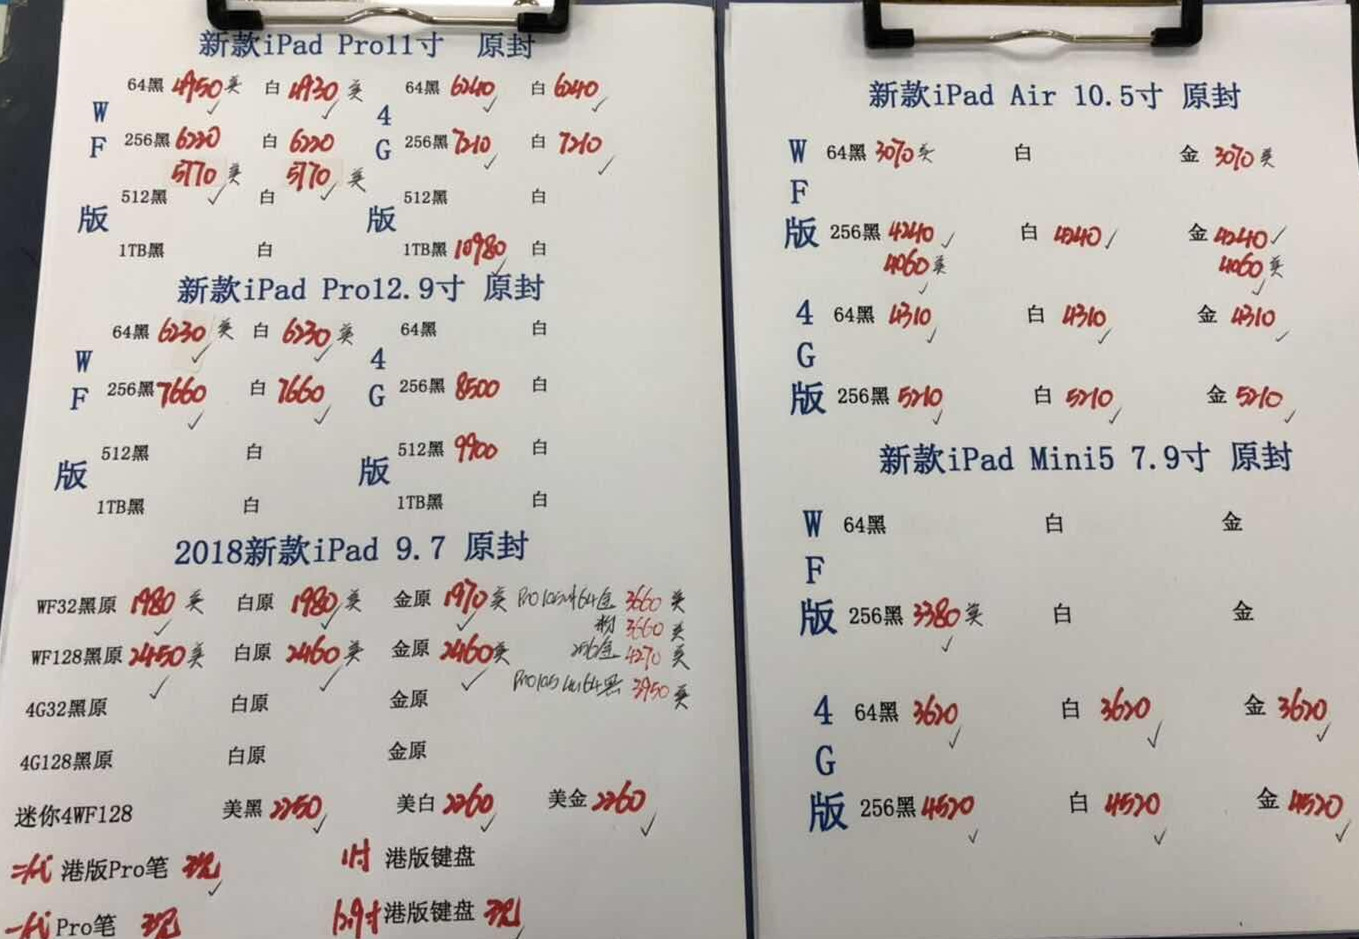 新款iPad Pro11寸 原封
64黑 4950 美 白 4930 美 64黑 6240 白 6240
W 4
F 256黑 6220 白 6220 G 256黑 7210 白 7210
5770 美 5770 美
版 512黑 白 版 512黑 白
1TB黑 白 1TB黑 10980 白
新款iPad Pro12.9寸 原封
64黑 6230 美 白 6230 美 64黑 白
W 4
F 256黑 7660 白 7660 G 256黑 8500 白
版 512黑 白 版 512黑 9900 白
1TB黑 白 1TB黑 白
2018新款iPad 9.7 原封
WF32黑原 1980 美 白原 1980 美 金原 1970 美 Pro10.5 64金 3660 美
粉 3660 美
WF128黑原 2450 美 白原 2460 美 金原 2460 美 256金 4270 美
Pro10.5 4G64黑 3950 美
4G32黑原 白原 金原
4G128黑原 白原 金原
迷你4WF128 美黑 2250 美白 2260 美金 2260
二代 港版Pro笔 现 11寸 港版键盘
一代 Pro笔 现 12.9寸 港版键盘 现
新款iPad Air 10.5寸 原封
W 64黑 3070 美 白 金 3070 美
F
版 256黑 4240 白 4240 金 4240
4060 美 4060 美
4 64黑 4310 白 4310 金 4310
G
版 256黑 5210 白 5210 金 5210
新款iPad Mini5 7.9寸 原封
W 64黑 白 金
F
版 256黑 3380 美 白 金
4 64黑 3620 白 3620 金 3620
G
版 256黑 4520 白 4520 金 4520